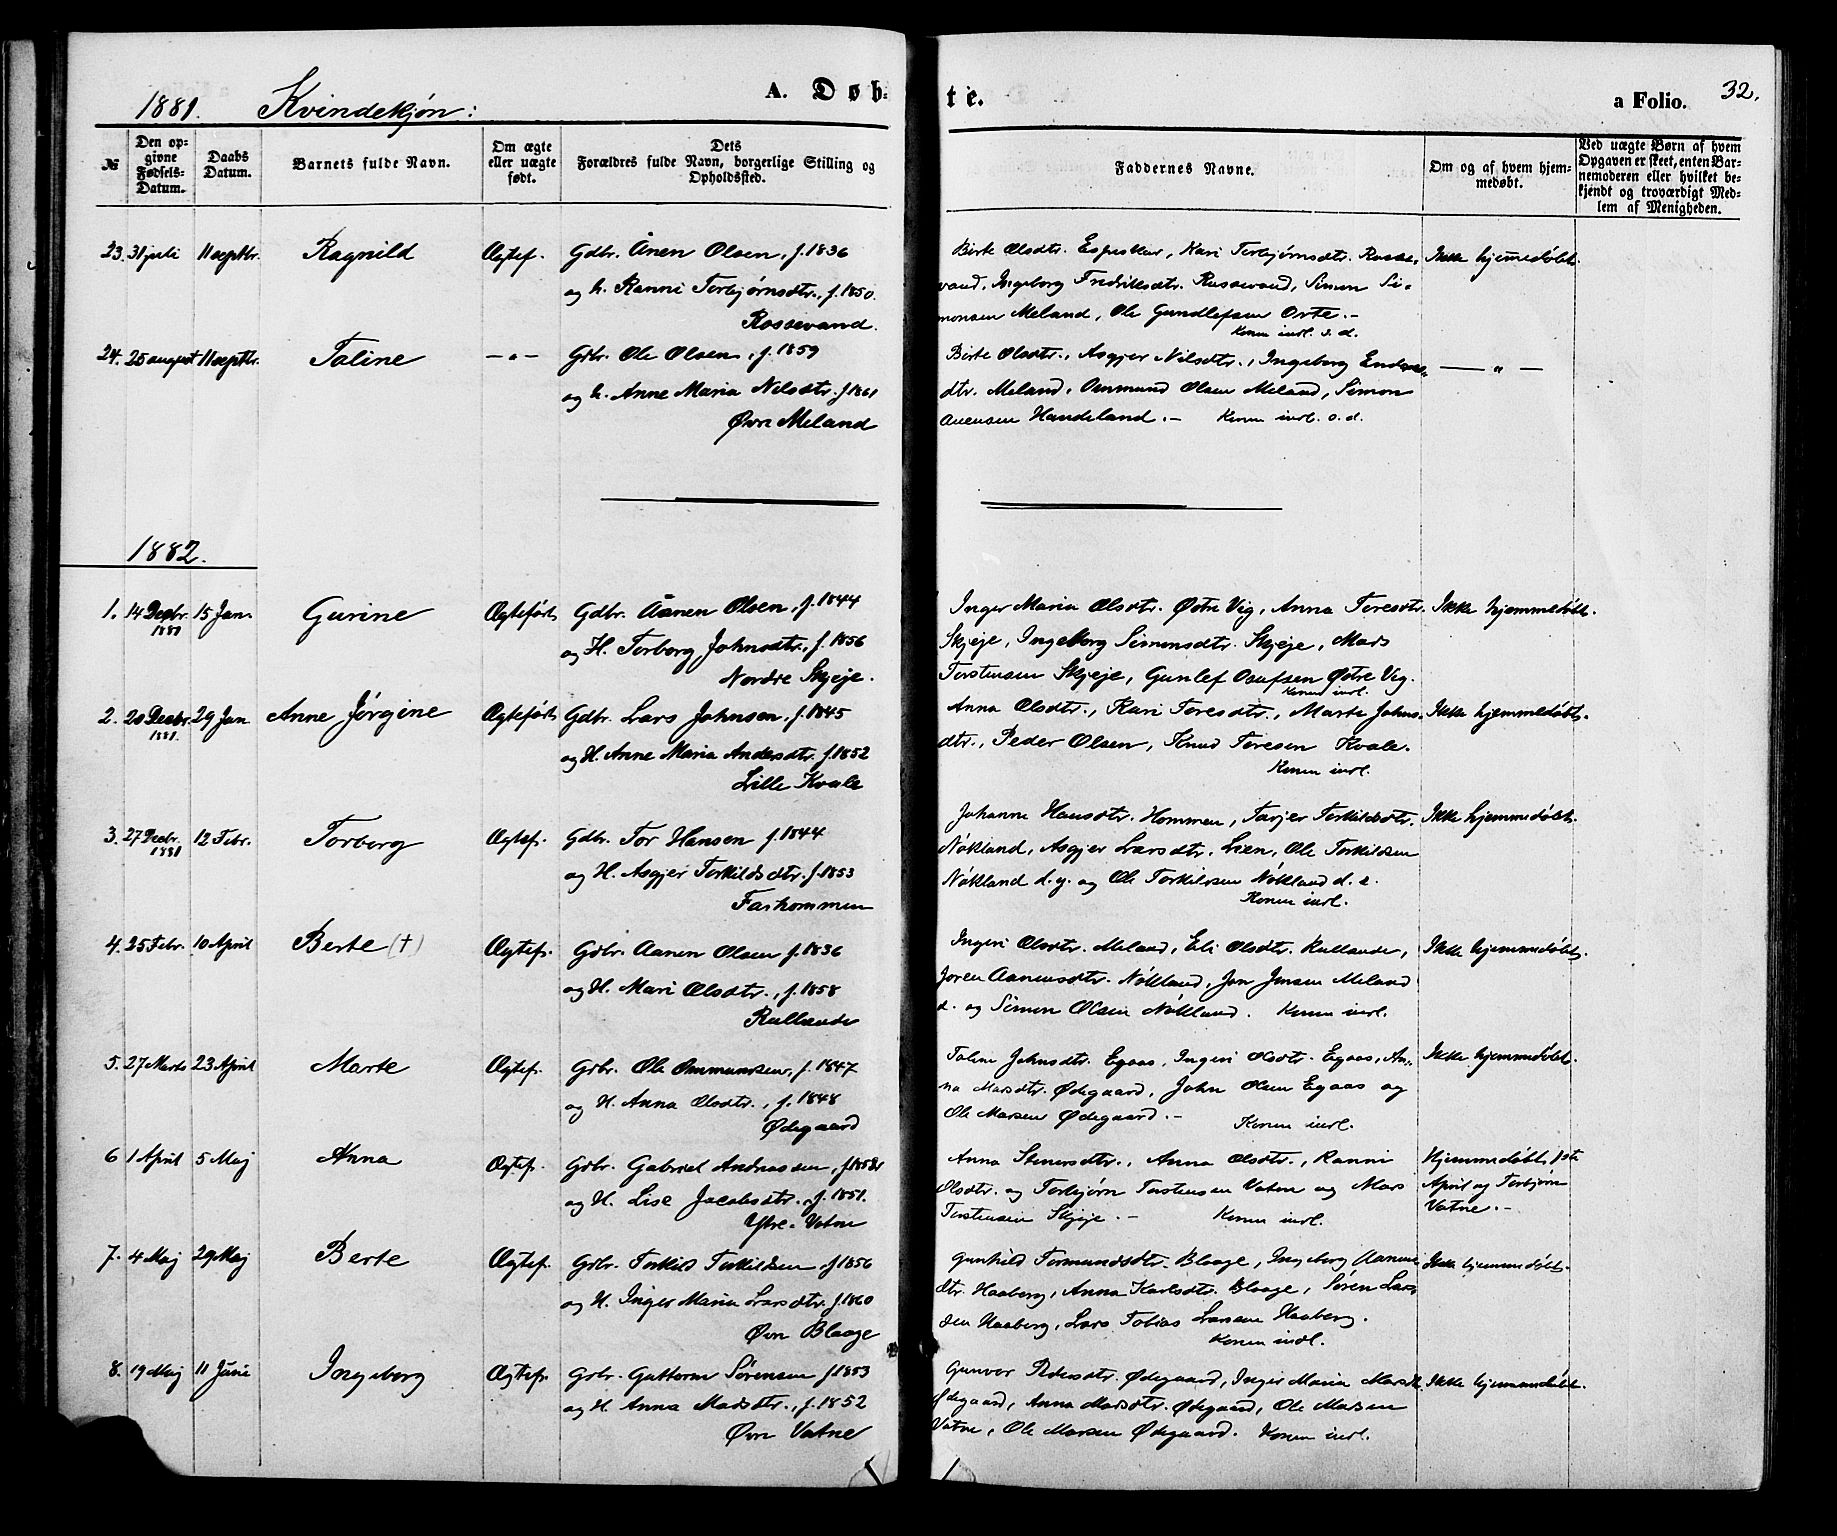 1881. Kvindekjøn: A. Døb- te. a Folio. 32.
№ Den opgivne Fødsels-Datum. Daabs Datum. Barnets fulde Navn. Om ægte eller uægte født. Dets Forældres fulde Navn, borgerlige Stilling og Opholdssted. Faddernes Navne. Om og af hvem hjemmedøbt. Ved uægte Børn af hvem Opgaven er skeet, enten Barnemoderen eller hvilket bekjendt og troværdigt Medlem af Menigheden.
23. 31 juli 11 septbr. Ragnild Ægtef. Gdbr. Ånen Olsen, f. 1836
og h. Ranni Torbjørnsdtr., f. 1850.
Rossevand.
Birte Olsdtr. Espeskar, Kari Torbjørnsdtr. Rosse-
vand, Ingeborg Fredriksdtr. Rossevand, Simon Si-
monsen Meland, Ole Gundlefsen Orte.-
Konen indl. s. d.
Ikke hjemmedøbt.
24. 25 august 11 septbr. Taline -„- Gdbr. Ole Olsen, f. 1859
og h. Anne Maria Nilsdtr. f 1861
Øvre Meland
Birte Olsdtr., Asgjer Nilsdtr., Ingeborg Enders-
dtr. Meland, Ommund Olsen Meland, Simon
Anensen Handeland.- Konen indl. s. d.
-„-
1882.
1. 14 Decbr. 1881 15 Jan. Gurine Ægteført Gdbr. Åanen Olsen, f. 1844
og H. Torborg Johnsdtr., f. 1856
Nordre Skjeje.
Inger Maria Olsdtr. Østre Vig, Anna Toresdtr.
Skjeje, Ingeborg Simonsdtr. Skjeje, Mads
Torstensen Skjeje, Gunlef Osufsen Østre Vig.
Konen indl.
Ikke hjemmedøbt.
2. 20 Decbr. 1881. 29 Jan Anne Jørgine Ægteført Gdbr. Lars Johnsen, f. 1845
og H. Anne Maria Andersdtr. f. 1852
Lille Kvale
Anna Olsdtr., Kari Toresdtr., Marte Johns-
dtr., Peder Olsen, Knud Toresen Kvale.
Konen indl.
Ikke hjemmedøbt.
3. 27 Decbr. 1881 12 Febr. Torborg Ægtef. Gdbr. Tor Hansen f. 1844
og H. Asgjer Torkildsdtr. f. 1853
Farhommen
Johanne Hansdtr. Hommen, Tarjer Torkildsdtr.
Nökland, Asgjer Larsdtr. Lien, Ole Torkildsen
Nökland d. y. og Ole Torkildsen Nökland d. e.
Konen indl.
Ikke hjemmedøbt.
4. 25 Febr. 10 April Berte (†) Ægtef. Gdbr. Aanen Olsen f. 1836
og H. Mari Olsdtr., f. 1858
Rullande
Ingeri Olsdtr. Meland, Eli Olsdtr. Rullande,
Joren Aanensdtr. Nökland, Jon Jensen Meland
d. og Simon Olsen Nökland. Konen indl.
Ikke hjemmedøbt.
5. 27 Marts 23 April Marte Ægtef. Gdbr. Ole Ommundsen, f. 1847
og H. Anna Olsdtr., f. 1848
Ødegaard
Taline Johnsdtr. Egaas, Ingeri Olsdtr. Egaas, An-
na Marsdtr. Ødegaard, John Olsen Egaas og
Ole Marsen Ødegaard.-
Konen indl.
Ikke hjemmedøbt.
6 1 April 5 Maj Anna Ægtef. Gdbr. Gabriel Andreassen, f. 1858
og H. Lise Jacobsdtr., f. 1851.
Ytre-Vatne
Anna Stenersdtr., Anna Olsdtr., Ranni
Olsdtr. og Torbjørn Torstensen Vatne og Mads
Torstensen Skjeje.- Konen indl.
Hjemmedøbt 1ste
April og Torbjørn
Vatne.-
7. 4 Maj 29 Maj Berte Ægtef. Gdbr. Torkild Torkildsen, f 1856
og H. Inger Maria Larsdtr. f. 1860
Øvre Blaage
Gunhild Tormundsdtr. Blaage, Ingeborg Aanens-
dtr. Haaberg, Anna Karlsdtr. Blaage, Sören Lars
den Haaberg, Lars Tobias Larsen Haaberg.
Konen indl.
Ikke hjemmedøbt.
8. 19 Maj 11 Juni Ingeborg Ægtef. Gdbr. Guttorm Sörensen f 1853
og H. Anna Madsdtr., f. 1852
Øvre Vatne
Gunvor Pedersdtr. Ødegaard, Inger Maria Marsdt.
Ødegaard, Anna Marsdtr. Ødegaard, Ole Madsen
Vatne, Ole Marsen Ødegaard. Konen indl.
Ikke hjemmedøbt.